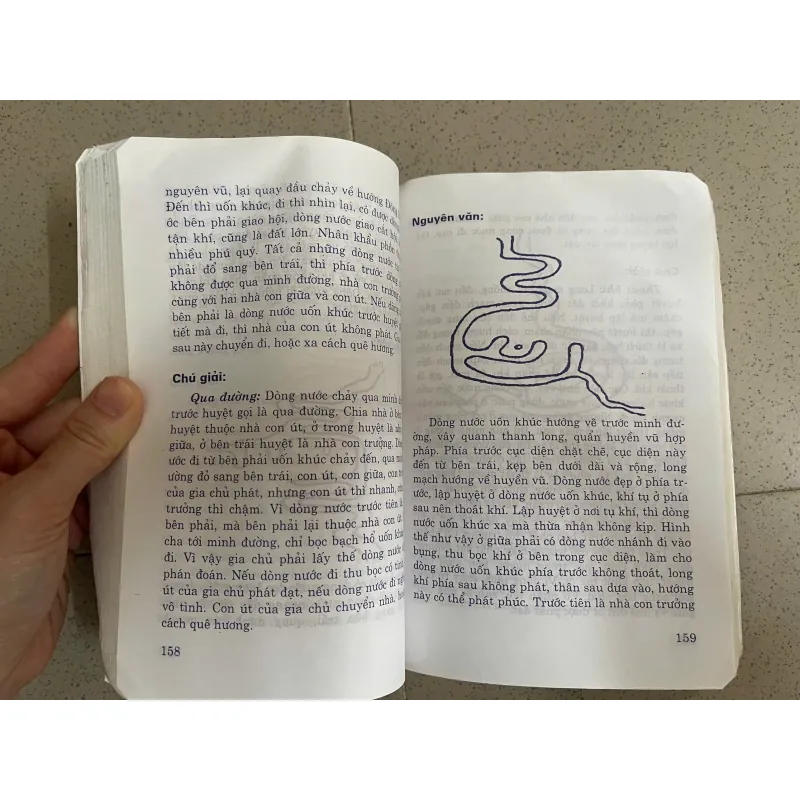 nguyên vũ, lại quay đầu chảy về hướng Đông
Đến thì uốn khúc, đi thì nhìn lại, có được
ớc bên phải giao hội, dòng nước giao cắt
tận khí, cũng là đất lớn. Nhân khẩu
nhiều phú quý. Tất cả những dòng nước
phải đổ sang bên trái, thì phía trước
không được qua minh đường, nhà con trưởng
cùng với hai nhà con giữa và con út. Nếu
bên phải là dòng nước uốn khúc trước huyệt
tiết mà đi, thì nhà của con út không phát.
sau này chuyển đi, hoặc xa cách quê hương.
Chú giải:
Qua đường: Dòng nước chảy qua minh
trước huyệt gọi là qua đường. Chia nhà ở bên
huyệt thuộc nhà con út, ở trong huyệt là
giữa, ở bên trái huyệt là nhà con trưởng.
ước đi từ bên phải uốn khúc chảy đến, qua
ường đổ sang bên trái, con út, con giữa, con
của gia chủ phát, nhưng con út thì nhanh,
trưởng thì chậm. Vì dòng nước trước tiên
bên phải, mà bên phải lại thuộc nhà con út
cha tới minh đường, chỉ bọc bạch hổ uốn
đi. Vì vậy gia chủ phải lấy thế dòng nước
phán đoán. Nếu dòng nước đi thu bọc có
út của gia chủ phát đạt, nếu dòng nước đi
vô tình. Con út của gia chủ chuyển nhà,
cách quê hương.
158
Nguyên văn:
Dòng nước uốn khúc hướng về trước minh đư-
ờng, vây quanh thanh long, quẩn huyền vũ hợp
pháp. Phía trước cục diện chặt chẽ, cục diện này
đến từ bên trái, kẹp bên dưới dài và rộng, long
mạch hướng về huyền vũ. Dòng nước đẹp ở phía tr-
ước, lập huyệt ở dòng nước uốn khúc, khí tụ ở phía
sau nên thoát khí. Lập huyệt ở nơi tụ khí, thì dòng
nước uốn khúc xa mà thừa nhận không kịp. Hình
thế như vậy ở giữa phải có dòng nước nhánh đi vào
bụng, thu bọc khí ở bên trong cục diện, làm cho
dòng nước uốn khúc phía trước không thoát, long
khí phía sau không phát, thân sau dựa vào, hướng
này có thể phát phúc. Trước tiên là nhà con trưởng
159